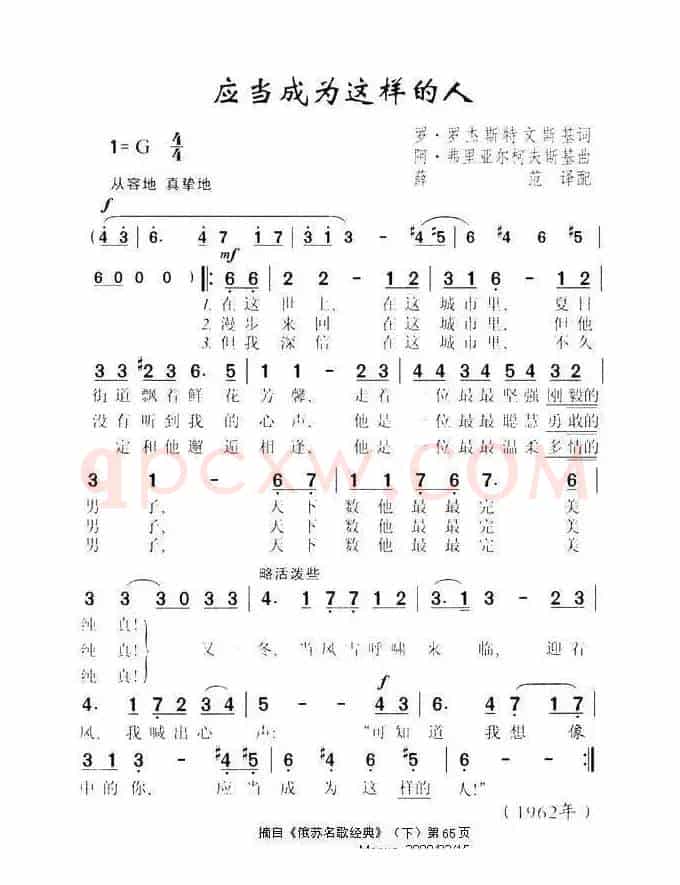 应当成为这样的人
1=G 4/4
罗·罗杰斯特文斯基词
阿·弗里亚尔柯夫斯基曲
薛 范 译配
从容地 真挚地
f
(4 3 | 6. 4 7 1 7 | 3 1 3 - #4 #5 | 6 #4 6 #5 |
mf
6 0 0 0) |: 6 6 | 2 2 - 1 2 | 3 1 6 - 1 2 |
1. 在这 世上, 在这 城市里, 夏日
2. 漫步 来回 在这 城市里, 但他
3. 但我 深信 在这 城市里, 不久
3 3 #2 3 6. 5 | 1 1 - 2 3 | 4 4 3 4 5 4 3 4 |
街道飘着鲜 花 芳馨, 走着 一位最最坚强刚毅的
没有听到我 的 心声, 他是 一位最最聪慧勇敢的
一定和他邂 逅 相逢, 他是 一位最最温柔多情的
3 1 - 6 7 | 1 1 7 6 7. 6 |
男 子, 天下 数他最最完 美
男 子, 天下 数他最最完 美
男 子, 天下 数他最最完 美
略活泼些
3 3 3 0 3 3 | 4. 1 7 7 1 2 | 3. 1 3 - 1 2 |
纯 真!
纯 真! 又一 冬, 当风雪呼啸 来 临, 迎着
纯 真!
f
4. 1 7 2 3 4 | 5 - - 4 3 | 6. 4 7 1 7 |
风, 我喊出心 声: “可知 道 我想 像
3 1 3 - #4 #5 | 6 #4 6 #5 | 6 - - :|
中的你, 应当 成 为 这 样的 人!”
(1962年)
摘自《俄苏名歌经典》(下)第65页